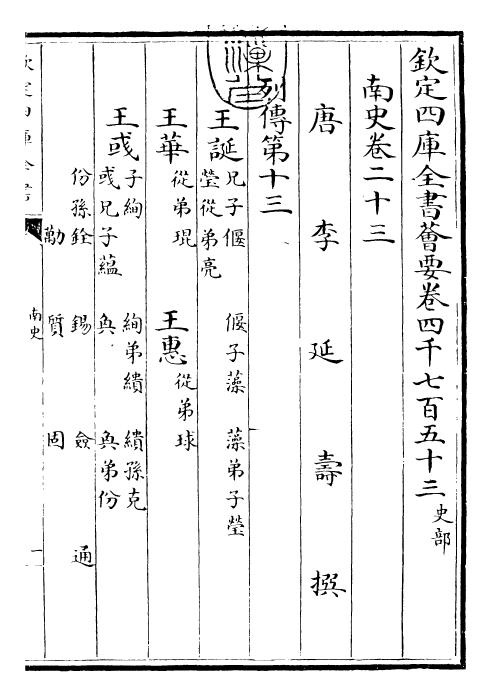 欽定四庫全書薈要卷四千七百五十三 史部
南史卷二十三
唐 李 延 壽 撰
列傳第十三
王誕 兄子偃 偃子藻 藻弟子瑩
瑩從弟亮
王華 從弟琨 王惠 從弟球
王彧 子絢 絢弟繢 繢孫克
彧兄子蘊 奐 奐弟份
份孫銓 錫 僉 通
勱 質 固
欽定四庫全書
南史
一